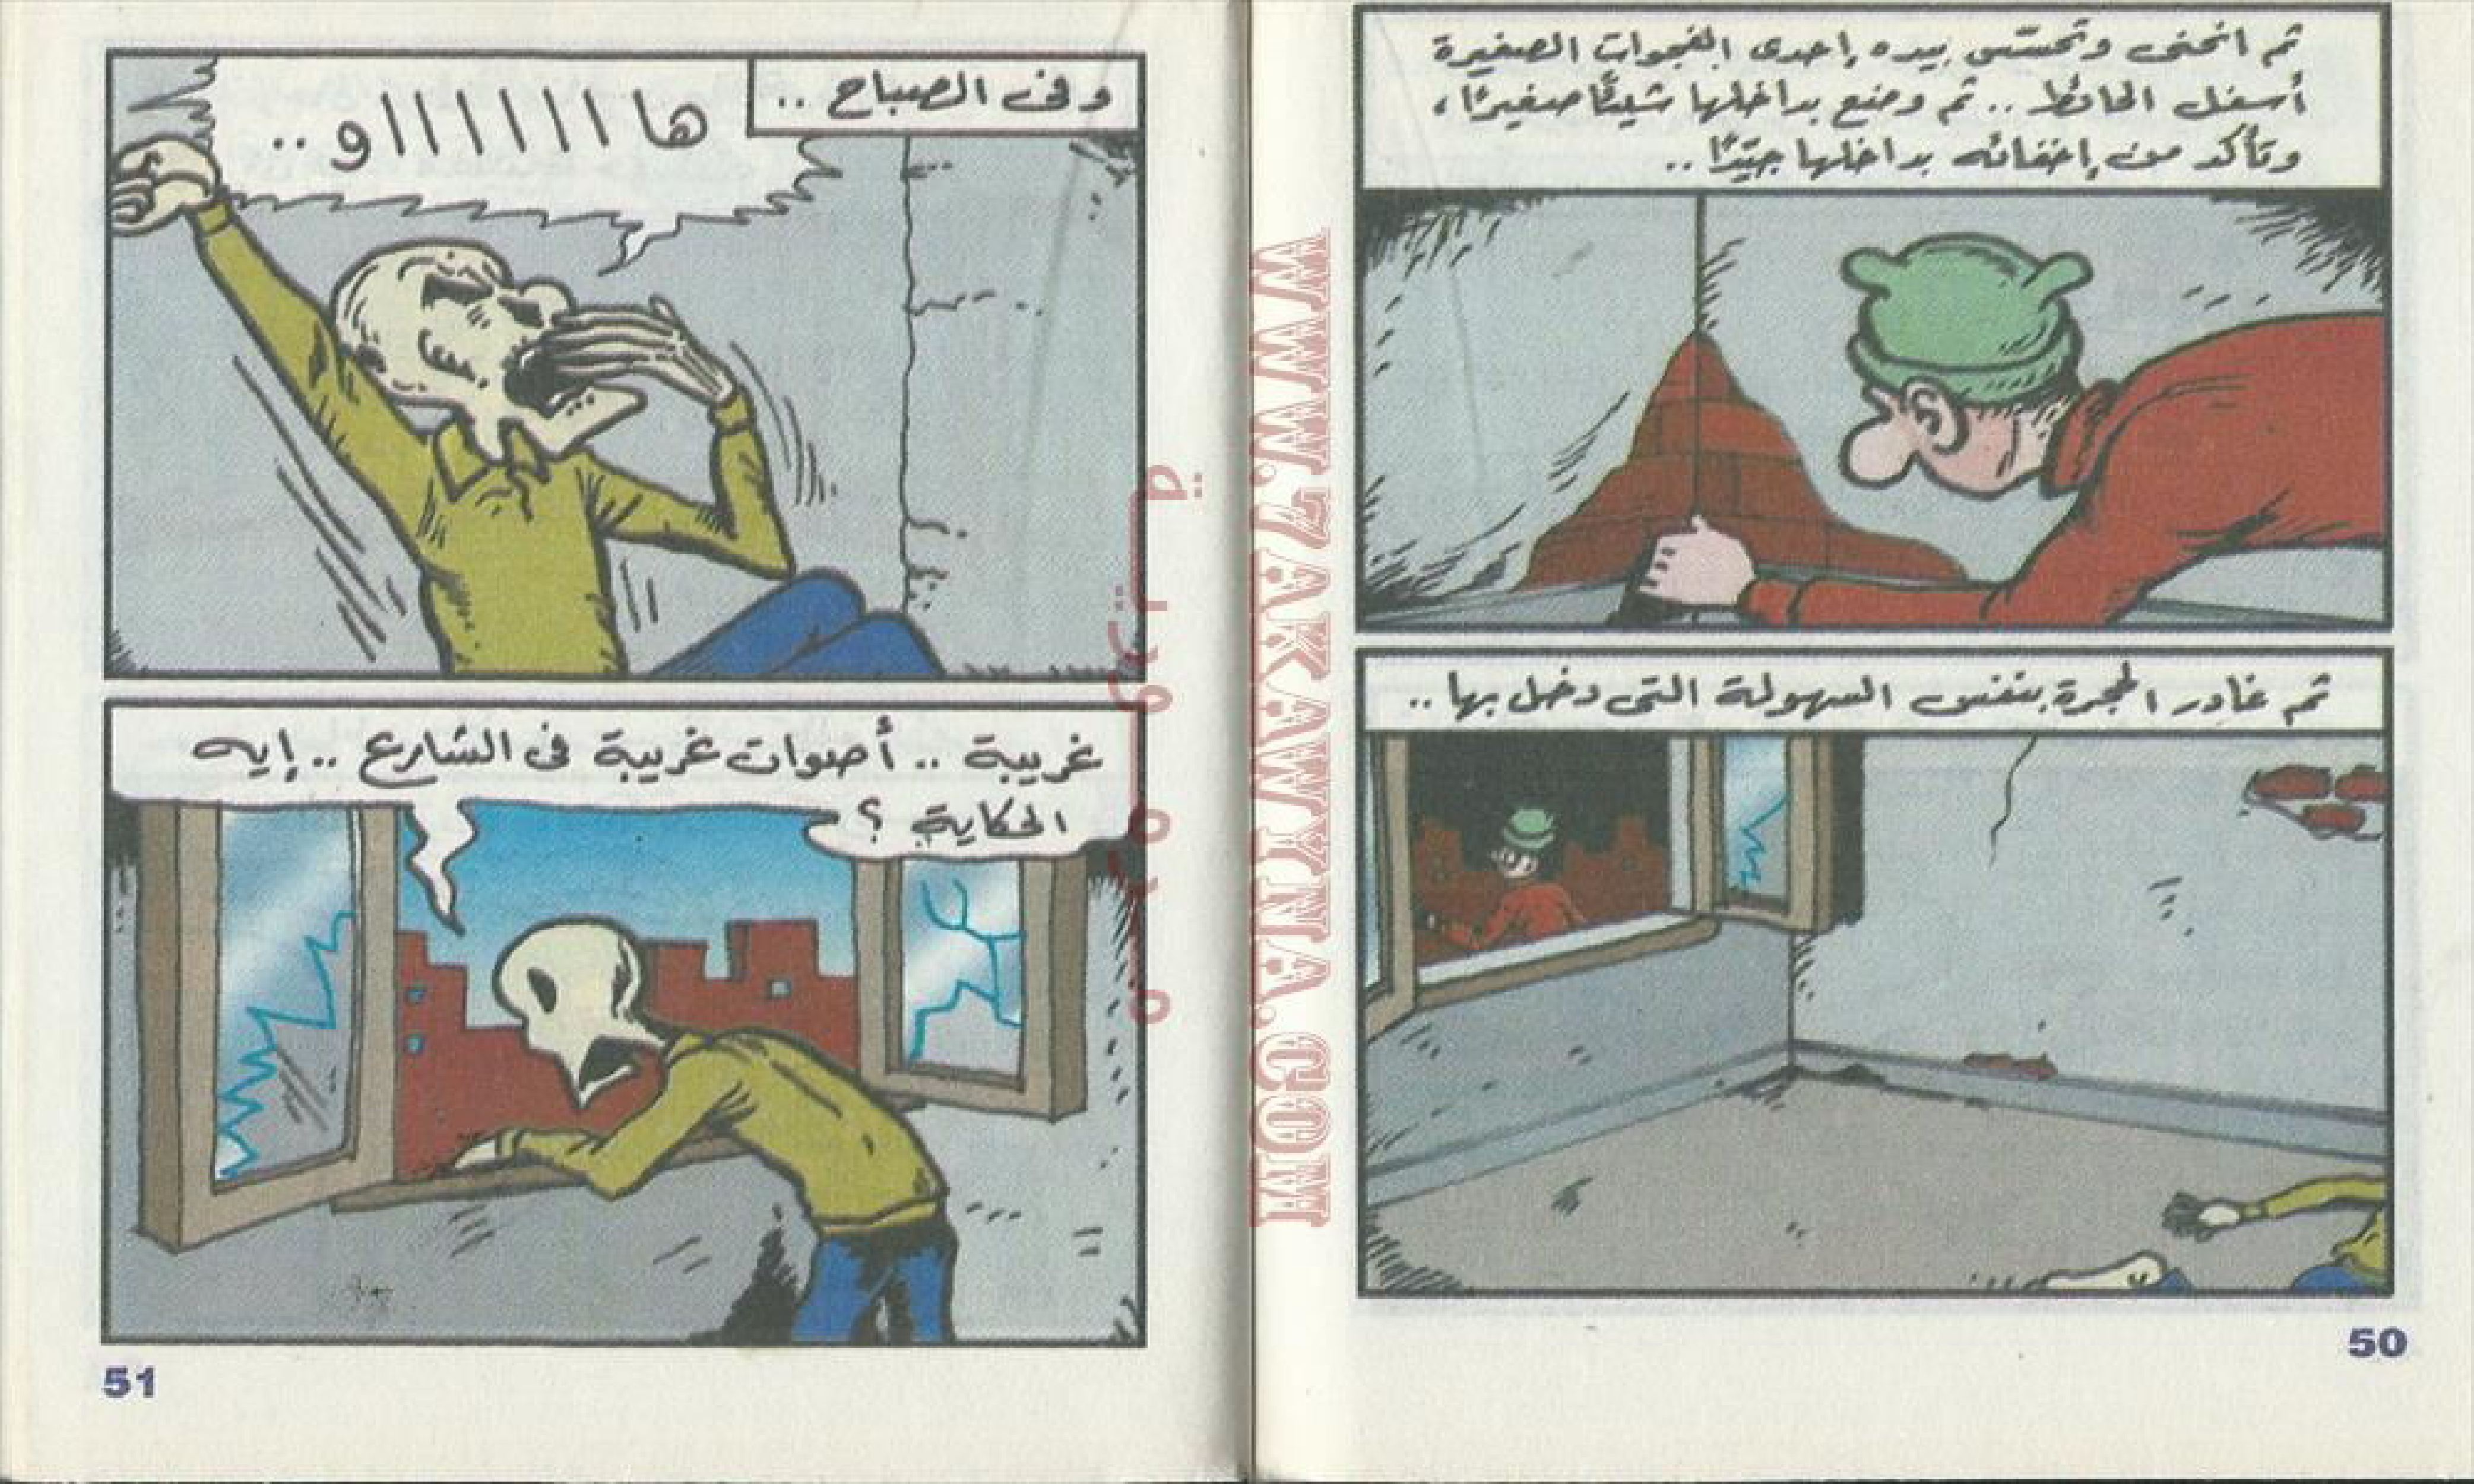 ثم انحنى وتحسّس بيده إحدى الفجوات الصغيرة
أسفل الحائط .. ثم وضع بداخلها شيئًا صغيرًا ،
وتأكد من إخفائه بداخلها جيّدًا ..
ثم غادر الحجرة بنفس السهولة التى دخل بها ..
50
وفى الصباح ..
ها ا ا ا ا ا ا ا و ..
غريبة .. أصوات غريبة فى الشارع .. إيه
الحكاية ؟
51
WWW.7AKAWINA.COM